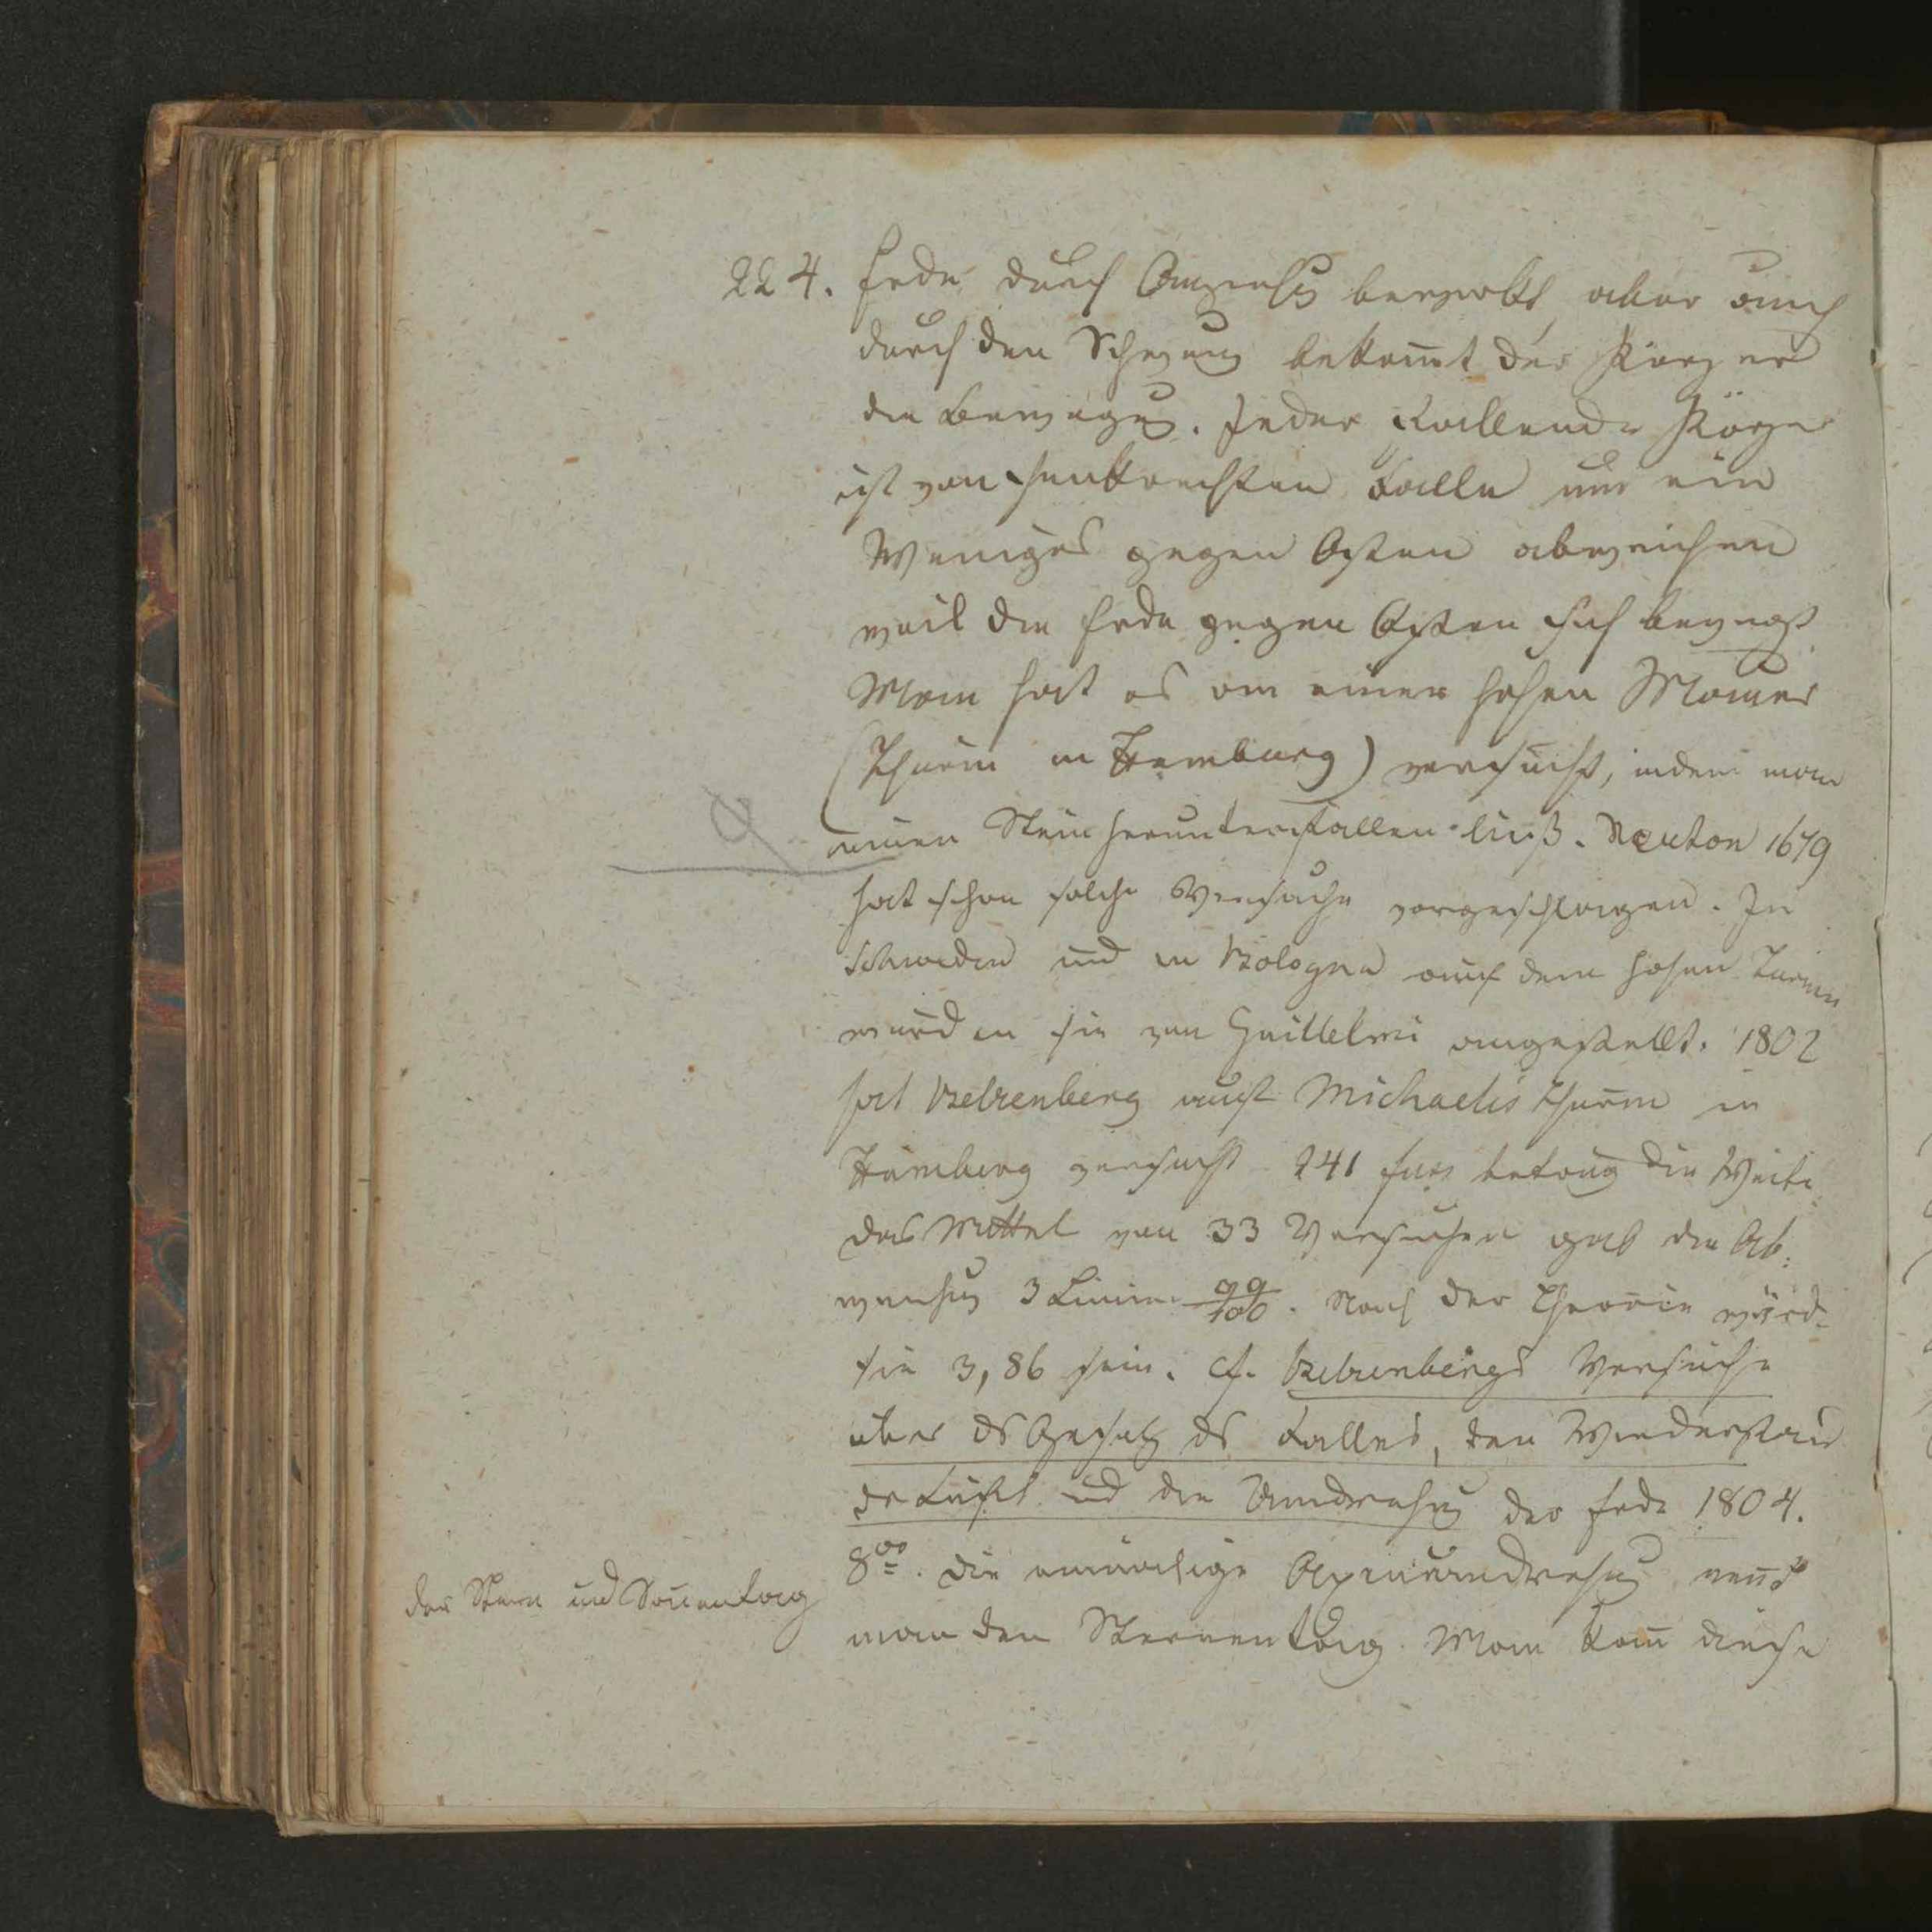 224. Erde durch Anziehug bewirkt, aber auch
durch den Schwung bekom̄t der Körper
die Bewegug. Jeder Fallende Körper
ist von senkrechten Falle um ein
Weniges gegen Osten abweichen
weil die Erde gegen Osten sich bewegt
Man hat es von einer hohen Mauer
(Thurm in Hamburg) versucht, indem man
einen Stein herunterfallen ließ. Newton 1679
hat schon solche Versuche vorgeschlagen. In
Schweden und in Bologna auf dem hohen Turm
wurden sie von Guillelmi angestellt. 1802
hat Belzenberg auf Michaelis Thurm in
Hamburg versucht 241 fuss betrug die Weite
das Mittel von 33 Versuchen gab die Ab:
weichug 3 Linien 99/100. Nach der Theorie würd-
sie 3,86 sein. cf. Belzenbergs Versuche
über ds Gesetz ds Falles, den Wiederstand
dr Luft ud die Umdrehug der Erde 1804.
8vo. Die einmalige Axenumdrehug nen̄t
der Stern und Son̄entag
man den Sternentag. Man kan̄ diese